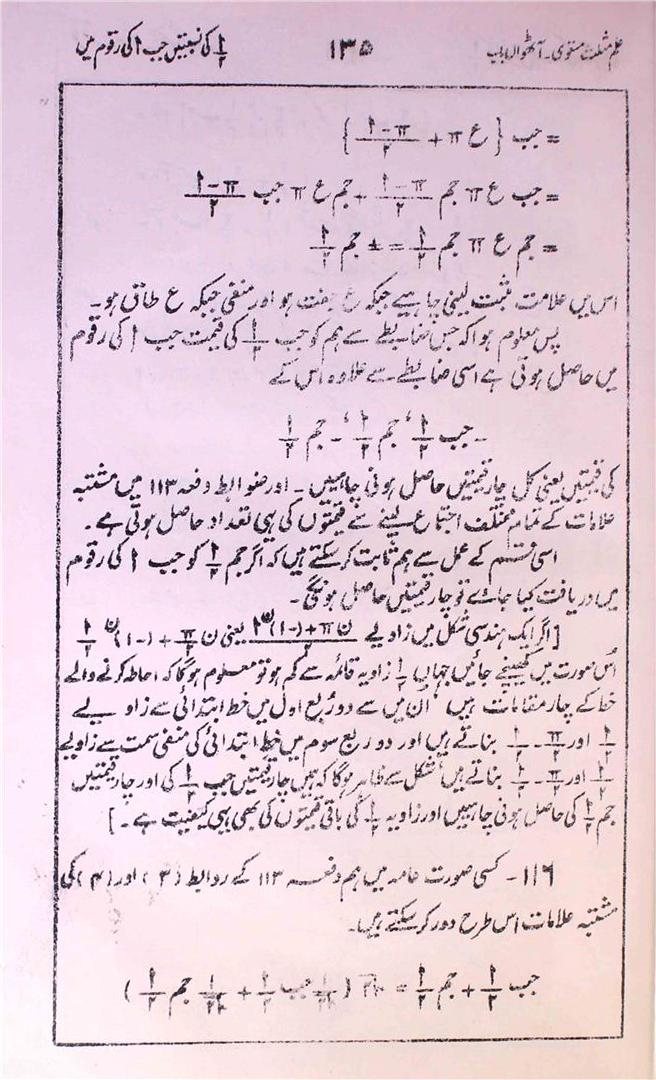 علم مثلث مستوی۔ آٹھواں باب ۱۳۵ ۱/۲ کی نسبتیں جب ا کی رقوم میں
= جب { ع π + (π - ا)/۲ }
= جب ع π جم (π - ا)/۲ + جم ع π جب (π - ا)/۲
= جم ع π جم ا/۲ = ± جم ا/۲
اس میں علامت مثبت لینی چاہیے جبکہ ع جفت ہو اور منفی جبکہ ع طاق ہو۔
پس معلوم ہوا کہ جس ضابطے سے ہم کو جب ا/۲ کی قیمت جب ا کی رقوم
میں حاصل ہوتی ہے اسی ضابطے سے علاوہ اس کے
- جب ا/۲، جم ا/۲، - جم ا/۲
کی قیمتیں یعنی کل چار قیمتیں حاصل ہونی چاہییں۔ اور ضوابط دفعہ ۱۱۳ میں مشتبہ
علامات کے تمام مختلف اجتماع لینے سے قیمتوں کی یہی تعداد حاصل ہوتی ہے۔
اسی قسم کے عمل سے ہم ثابت کر سکتے ہیں کہ اگر جم ا/۲ کو جب ا کی رقوم
میں دریافت کیا جائے تو چار قیمتیں حاصل ہونگی۔
[اگر ایک ہندسی شکل میں زاویے (ن π + (-۱)^ن ا)/۲ یعنی ن π/۲ + (-۱)^ن ا/۲
اُس صورت میں کھینچے جائیں جہاں ا/۲ زاویہ قائمہ سے کم ہو تو معلوم ہوگا کہ احاطہ کرنے والے
خط کے چار مقامات ہیں، اُن میں سے دو ربع اول میں خط ابتدائی سے زاویے
ا/۲ اور π/۲ - ا/۲ بناتے ہیں اور دو ربع سوم میں خط ابتدائی کی منفی سمت سے زاویے
ا/۲ اور π/۲ - ا/۲ بناتے ہیں، شکل سے ظاہر ہوگا کہ ہمیں چار قیمتیں جب ا/۲ کی اور چار قیمتیں
جم ا/۲ کی حاصل ہونی چاہییں اور زاویہ ا/۲ کی باقی قیمتوں کی بھی یہی کیفیت ہے۔]
۱۱۶ - کسی صورت عامہ میں ہم دفعہ ۱۱۳ کے روابط (۳) اور (۴) کی
مشتبہ علامات اس طرح دور کر سکتے ہیں۔
جب ا/۲ + جم ا/۲ = √۲ (۱/√۲ جب ا/۲ + ۱/√۲ جم ا/۲)